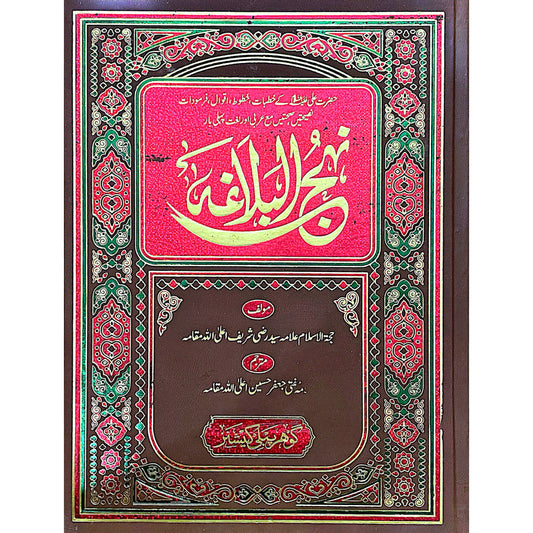 حضرت علی علیہ السلام کے خطبات، خطوط، اقوال، فرمودات
نصیحتیں مع عربی اور لغت پہلی بار
نہج البلاغہ
مؤلف
حجۃ الاسلام علامہ سید رضی شریف اعلی اللہ مقامہ
مترجم
مفتی جعفر حسین اعلیٰ اللہ مقامہ
گوھر پبلی کیشنز